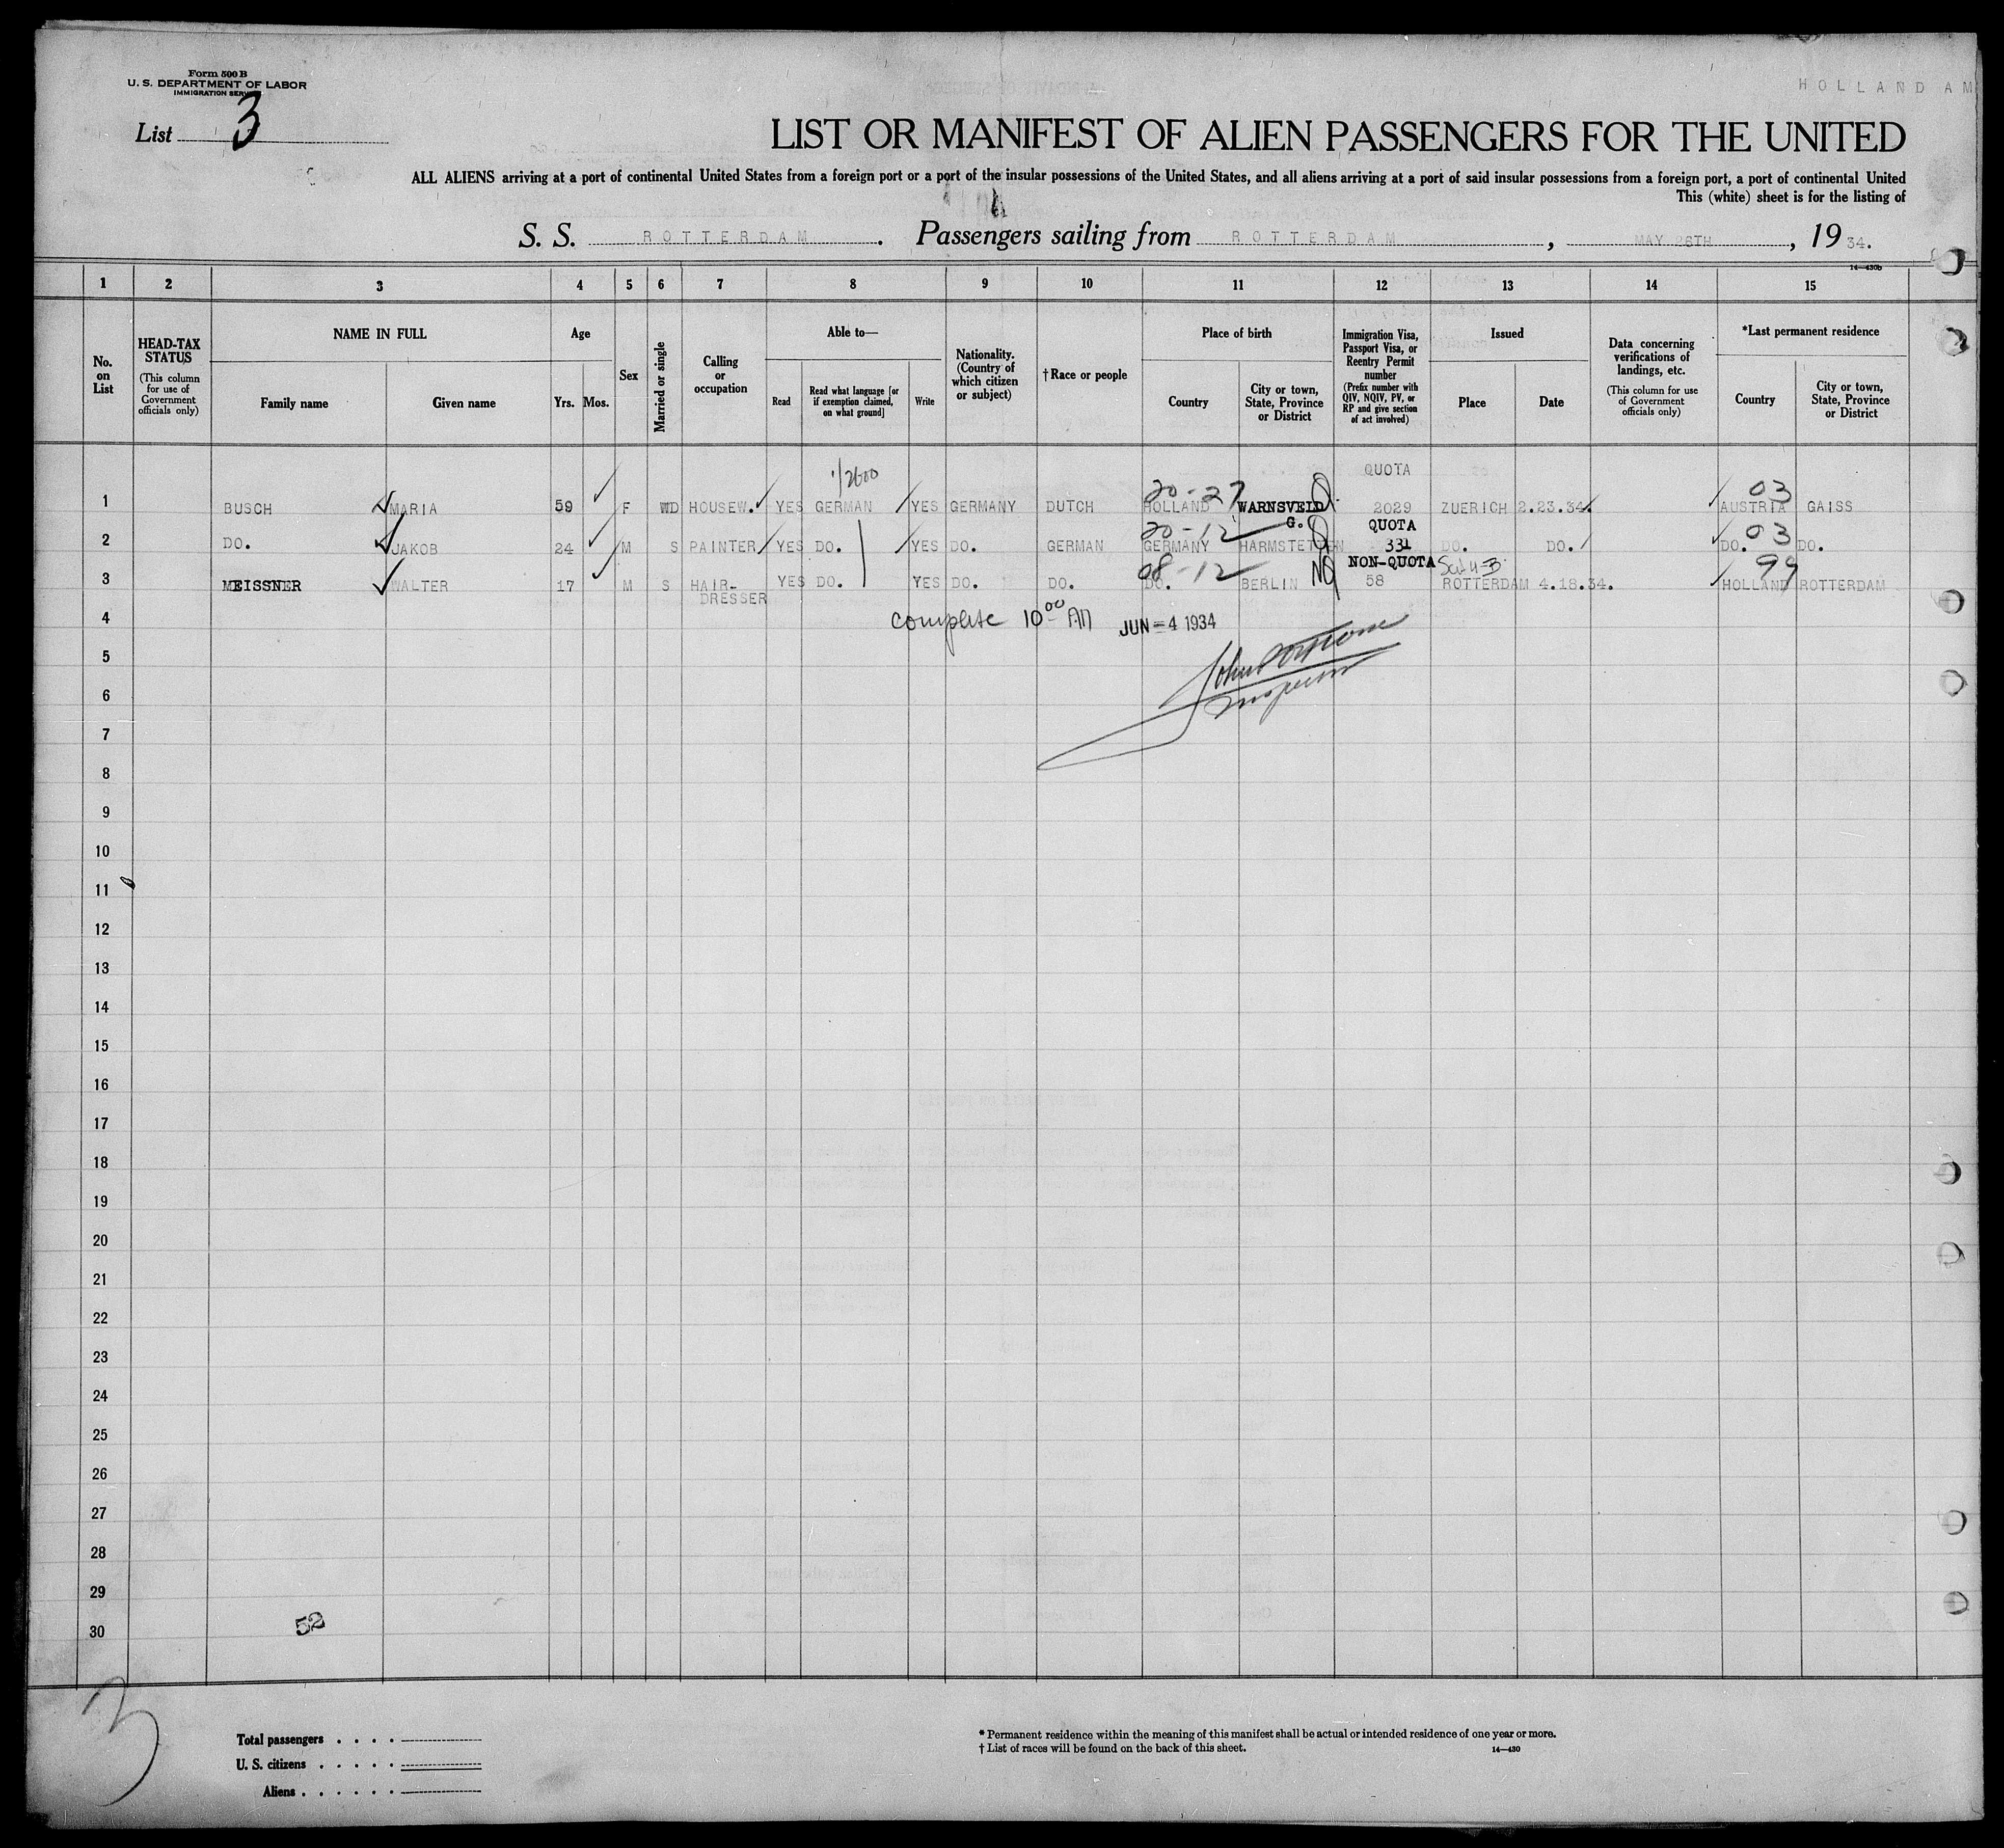 Form 500 B
U. S. DEPARTMENT OF LABOR
IMMIGRATION SERVICE
HOLLAND AM
List 3
LIST OR MANIFEST OF ALIEN PASSENGERS FOR THE UNITED
ALL ALIENS arriving at a port of continental United States from a foreign port or a port of the insular possessions of the United States, and all aliens arriving at a port of said insular possessions from a foreign port, a port of continental United
This (white) sheet is for the listing of
S. S. ROTTERDAM. Passengers sailing from ROTTERDAM, MAY 26TH, 19 34.
14—430b
1 2 3 4 5 6 7 8 9 10 11 12 13 14 15
No. on List
HEAD-TAX STATUS
(This column for use of Government officials only)
NAME IN FULL
Family name Given name
Age
Yrs. Mos.
Sex
Married or single
Calling or occupation
Able to—
Read
Read what language [or if exemption claimed, on what ground]
Write
Nationality. (Country of which citizen or subject)
† Race or people
Place of birth
Country
City or town, State, Province or District
Immigration Visa, Passport Visa, or Reentry Permit number
(Prefix number with QIV, NQIV, PV, or RP and give section of act involved)
Issued
Place Date
Data concerning verifications of landings, etc.
(This column for use of Government officials only)
*Last permanent residence
Country
City or town, State, Province or District
1/2600 QUOTA
20-27 Q 03
1 BUSCH MARIA 59 F WD HOUSEW. YES GERMAN YES GERMANY DUTCH HOLLAND WARNSVELD G. 2029 ZUERICH 2.23.34. AUSTRIA GAISS
20-12 Q QUOTA 03
2 DO. JAKOB 24 M S PAINTER YES DO. YES DO. GERMAN GERMANY HARMSTETTEN 331 DO. DO. DO. DO.
08-12 NQ NON-QUOTA 99
3 MEISSNER WALTER 17 M S HAIR-DRESSER YES DO. YES DO. DO. DO. BERLIN 58 ROTTERDAM 4.18.34. HOLLAND ROTTERDAM
4 complete 10 00 AM JUN - 4 1934
5
6 Inspector
7
8
9
10
11
12
13
14
15
16
17
18
19
20
21
22
23
24
25
26
27
28
29
30 52
3
Total passengers . . . .
U. S. citizens . . . . .
Aliens . . . . . .
* Permanent residence within the meaning of this manifest shall be actual or intended residence of one year or more.
† List of races will be found on the back of this sheet. 14—430